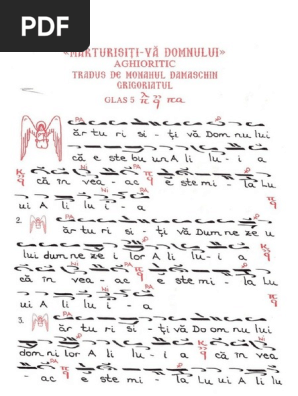 PDF
«MĂRTURISIȚI-VĂ DOMNULUI»
AGHIORITIC
TRADUS DE MONAHUL DAMASCHIN
GRIGORIATUL
GLAS 5 πα
ăr tu ri si - ți vă Dom nu lui
că e ste bu un A li lu - i a
că în vea - ac e ste mi - la Lu
ui A li lu i a
2. ăr tu ri si - ți vă Dum ne ze u
lui dum ne ze i lor A li lu - i a
că în vea - ac e ste mi - la Lu
ui A li lu i a
3. ăr tu ri si - ți vă Do om nu lui
dom ni lor A li lu - i a că în vea
- ac e ste mi - la Lu ui A li lu